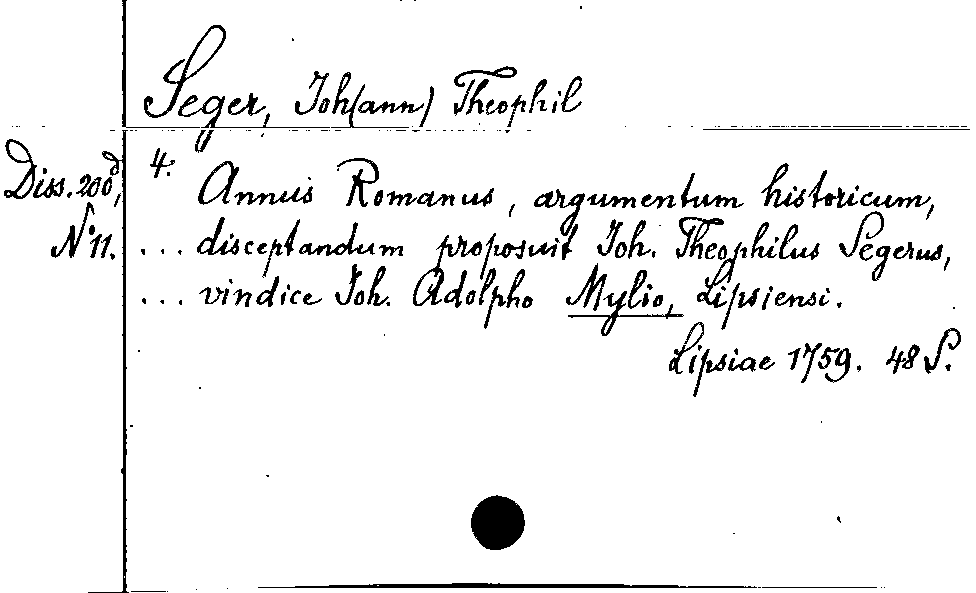 Seger, Joh(ann) Theophil
Diss. 200d, 4°.
Annus Romanus, argumentum historicum,
N° 11. ... disceptandum proposuit Joh. Theophilus Segerus,
... vindice Joh. Adolpho Mylio, Lipsiensi.
Lipsiae 1759. 48 S.